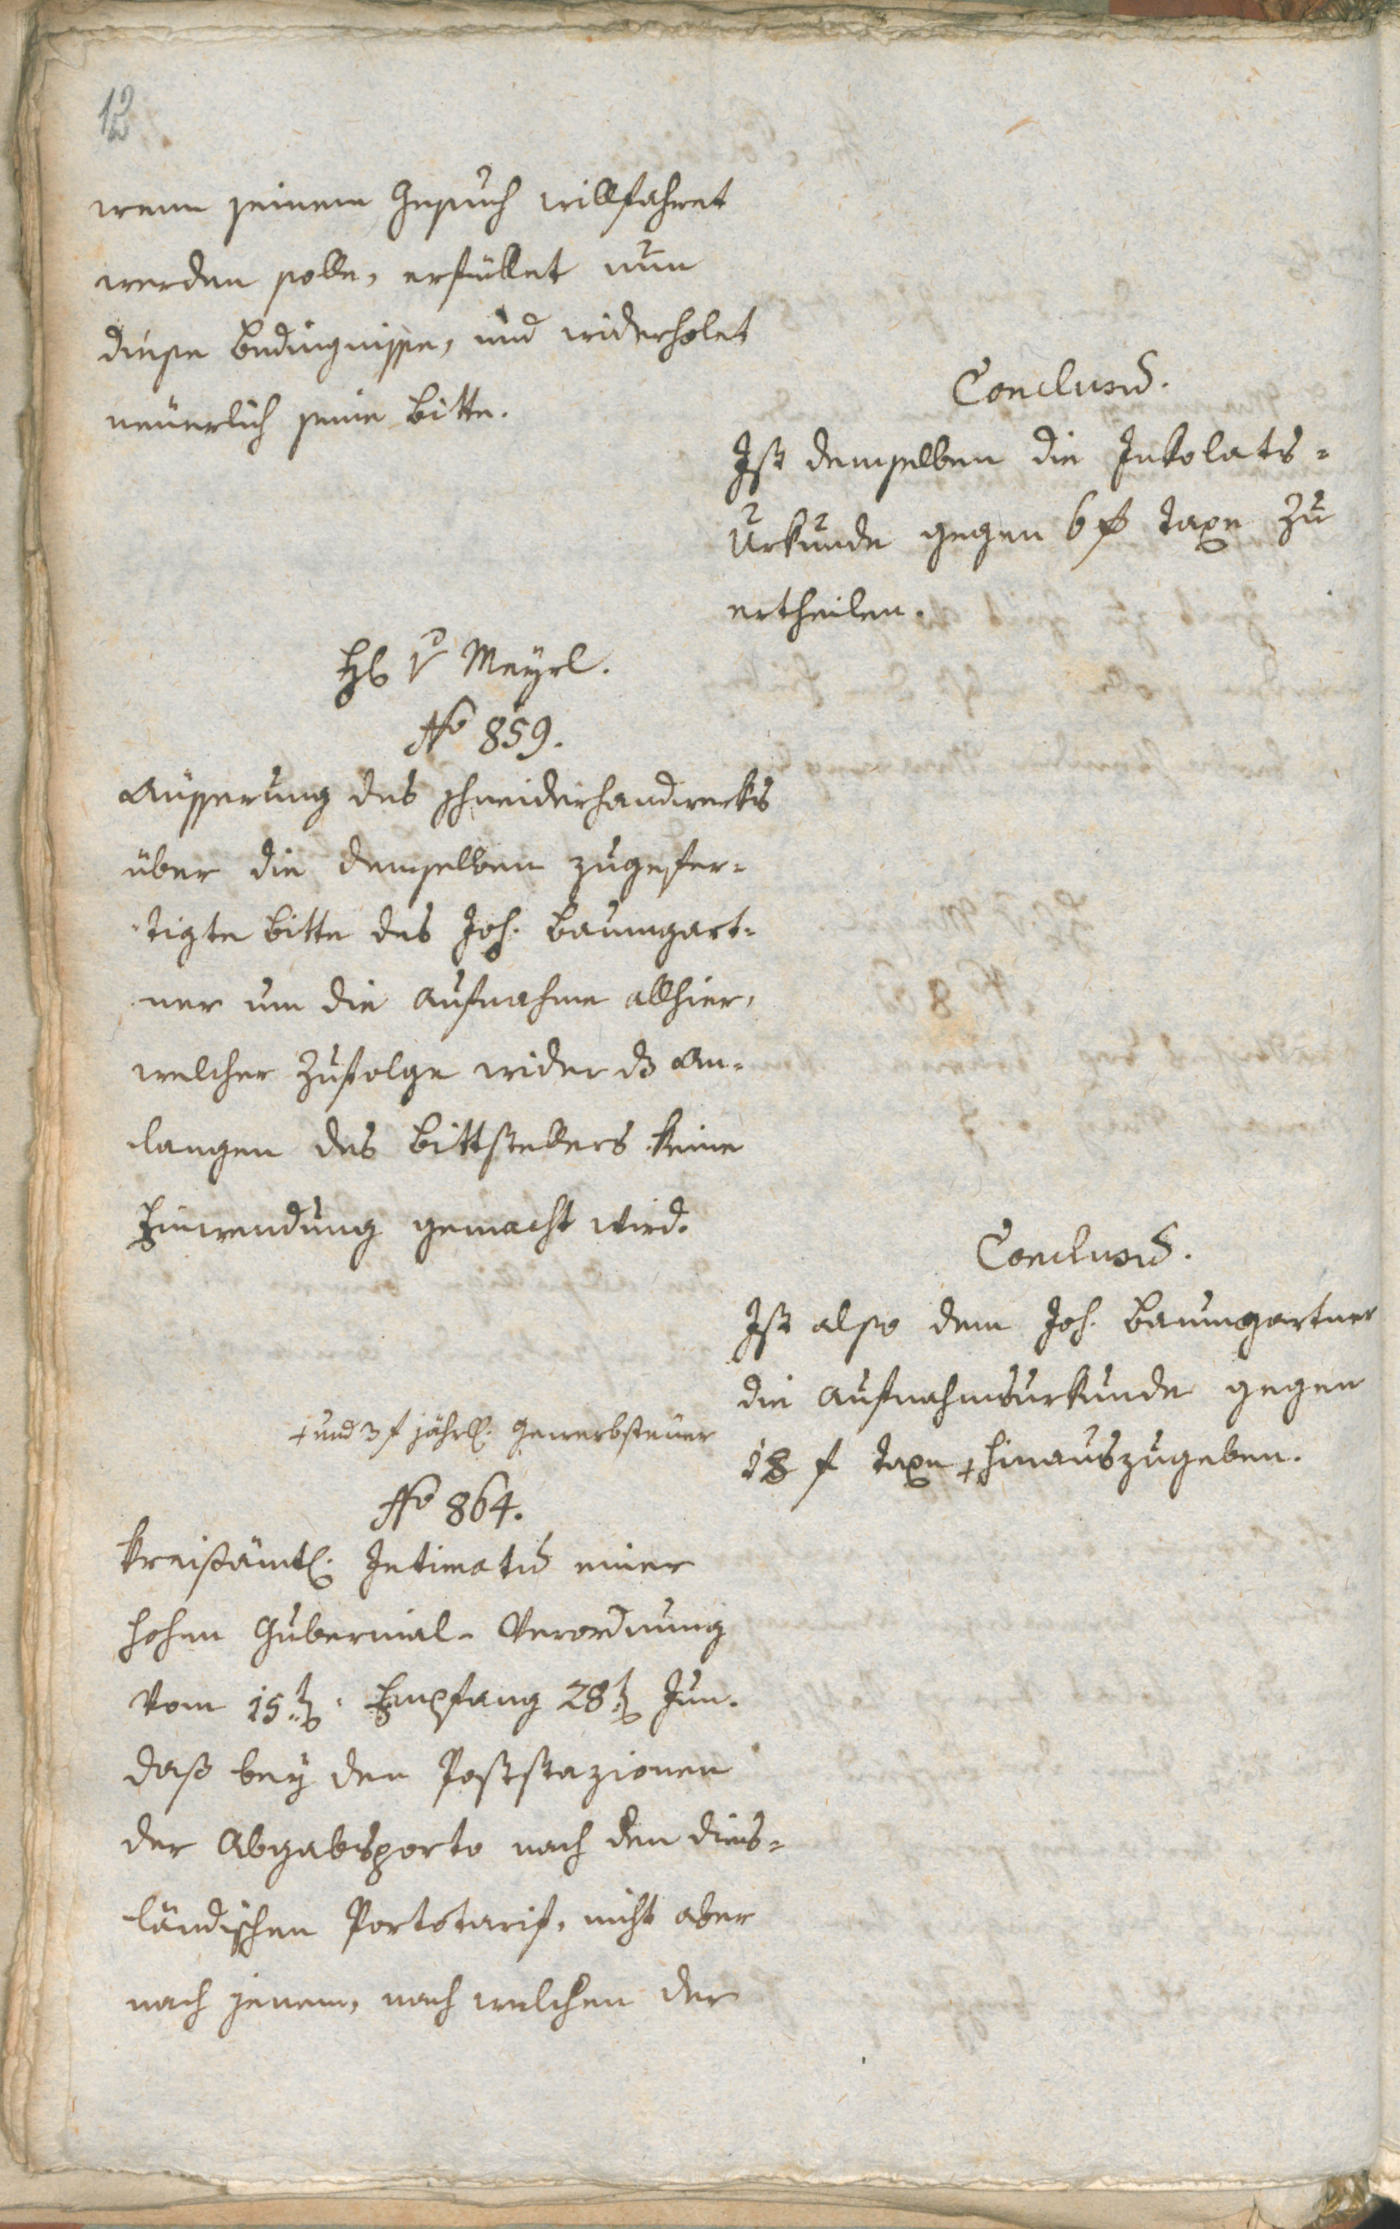 12
wenn seinem Gesuch willfahret
werden solle, erfüllet nun
diese Bedingnisse, und widerholet
neuerlich seine Bitte.
Conclusum.
Ist demselben die Inkolats-
Urkunde gegen 6 f Taxe zu
ertheilen.
H v Meyrl.
No 859.
Äusserung des Schneiderhandwerks
über die demselben zugefer-
tigte Bitte des Joh. Baumgart-
ner um die Aufnahme allhier,
welcher zufolge wider dz An-
langen des Bittstellers keine
Einwendung gemacht wird.
Conclusum.
Ist also dem Joh. Baumgartner
die Aufnahmsurkunde gegen
18 f Taxe + hinauszugeben.
+ und 3 f jährl. Gewerbsteuer
No 864.
Kreisämtl. Intimatum einer
hohen Gubernial-Verordnung
vom 15t. Empfang 28t Jun.
daß bey den Poststazionen
der Abgabsporto nach den dies-
ländischen Portotarif, nicht aber
nach jenem, nach welchen der